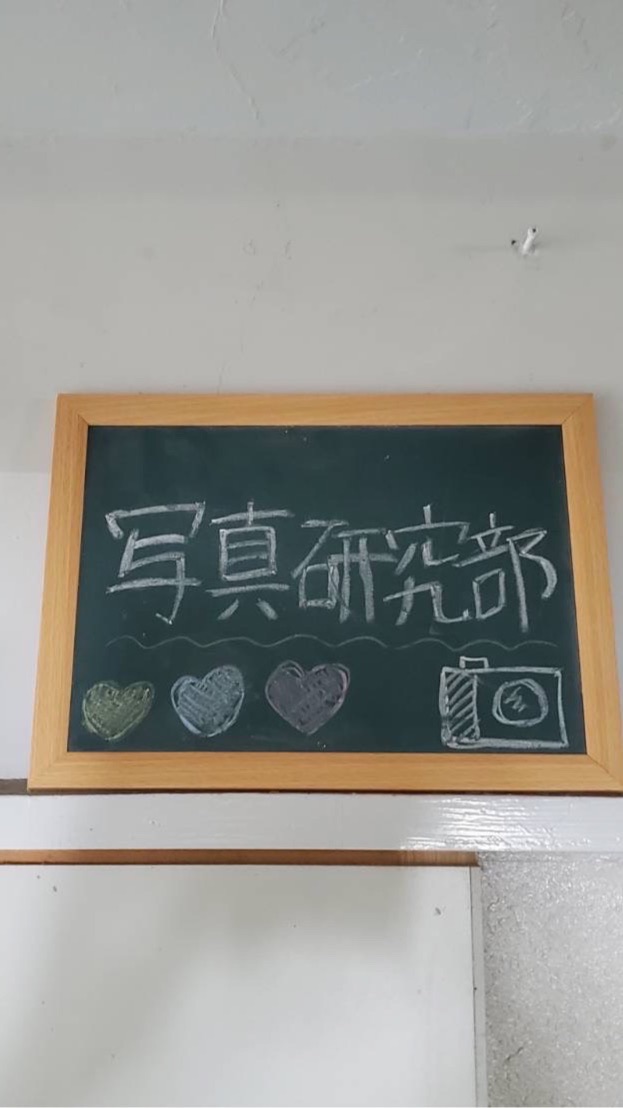 写真研究部